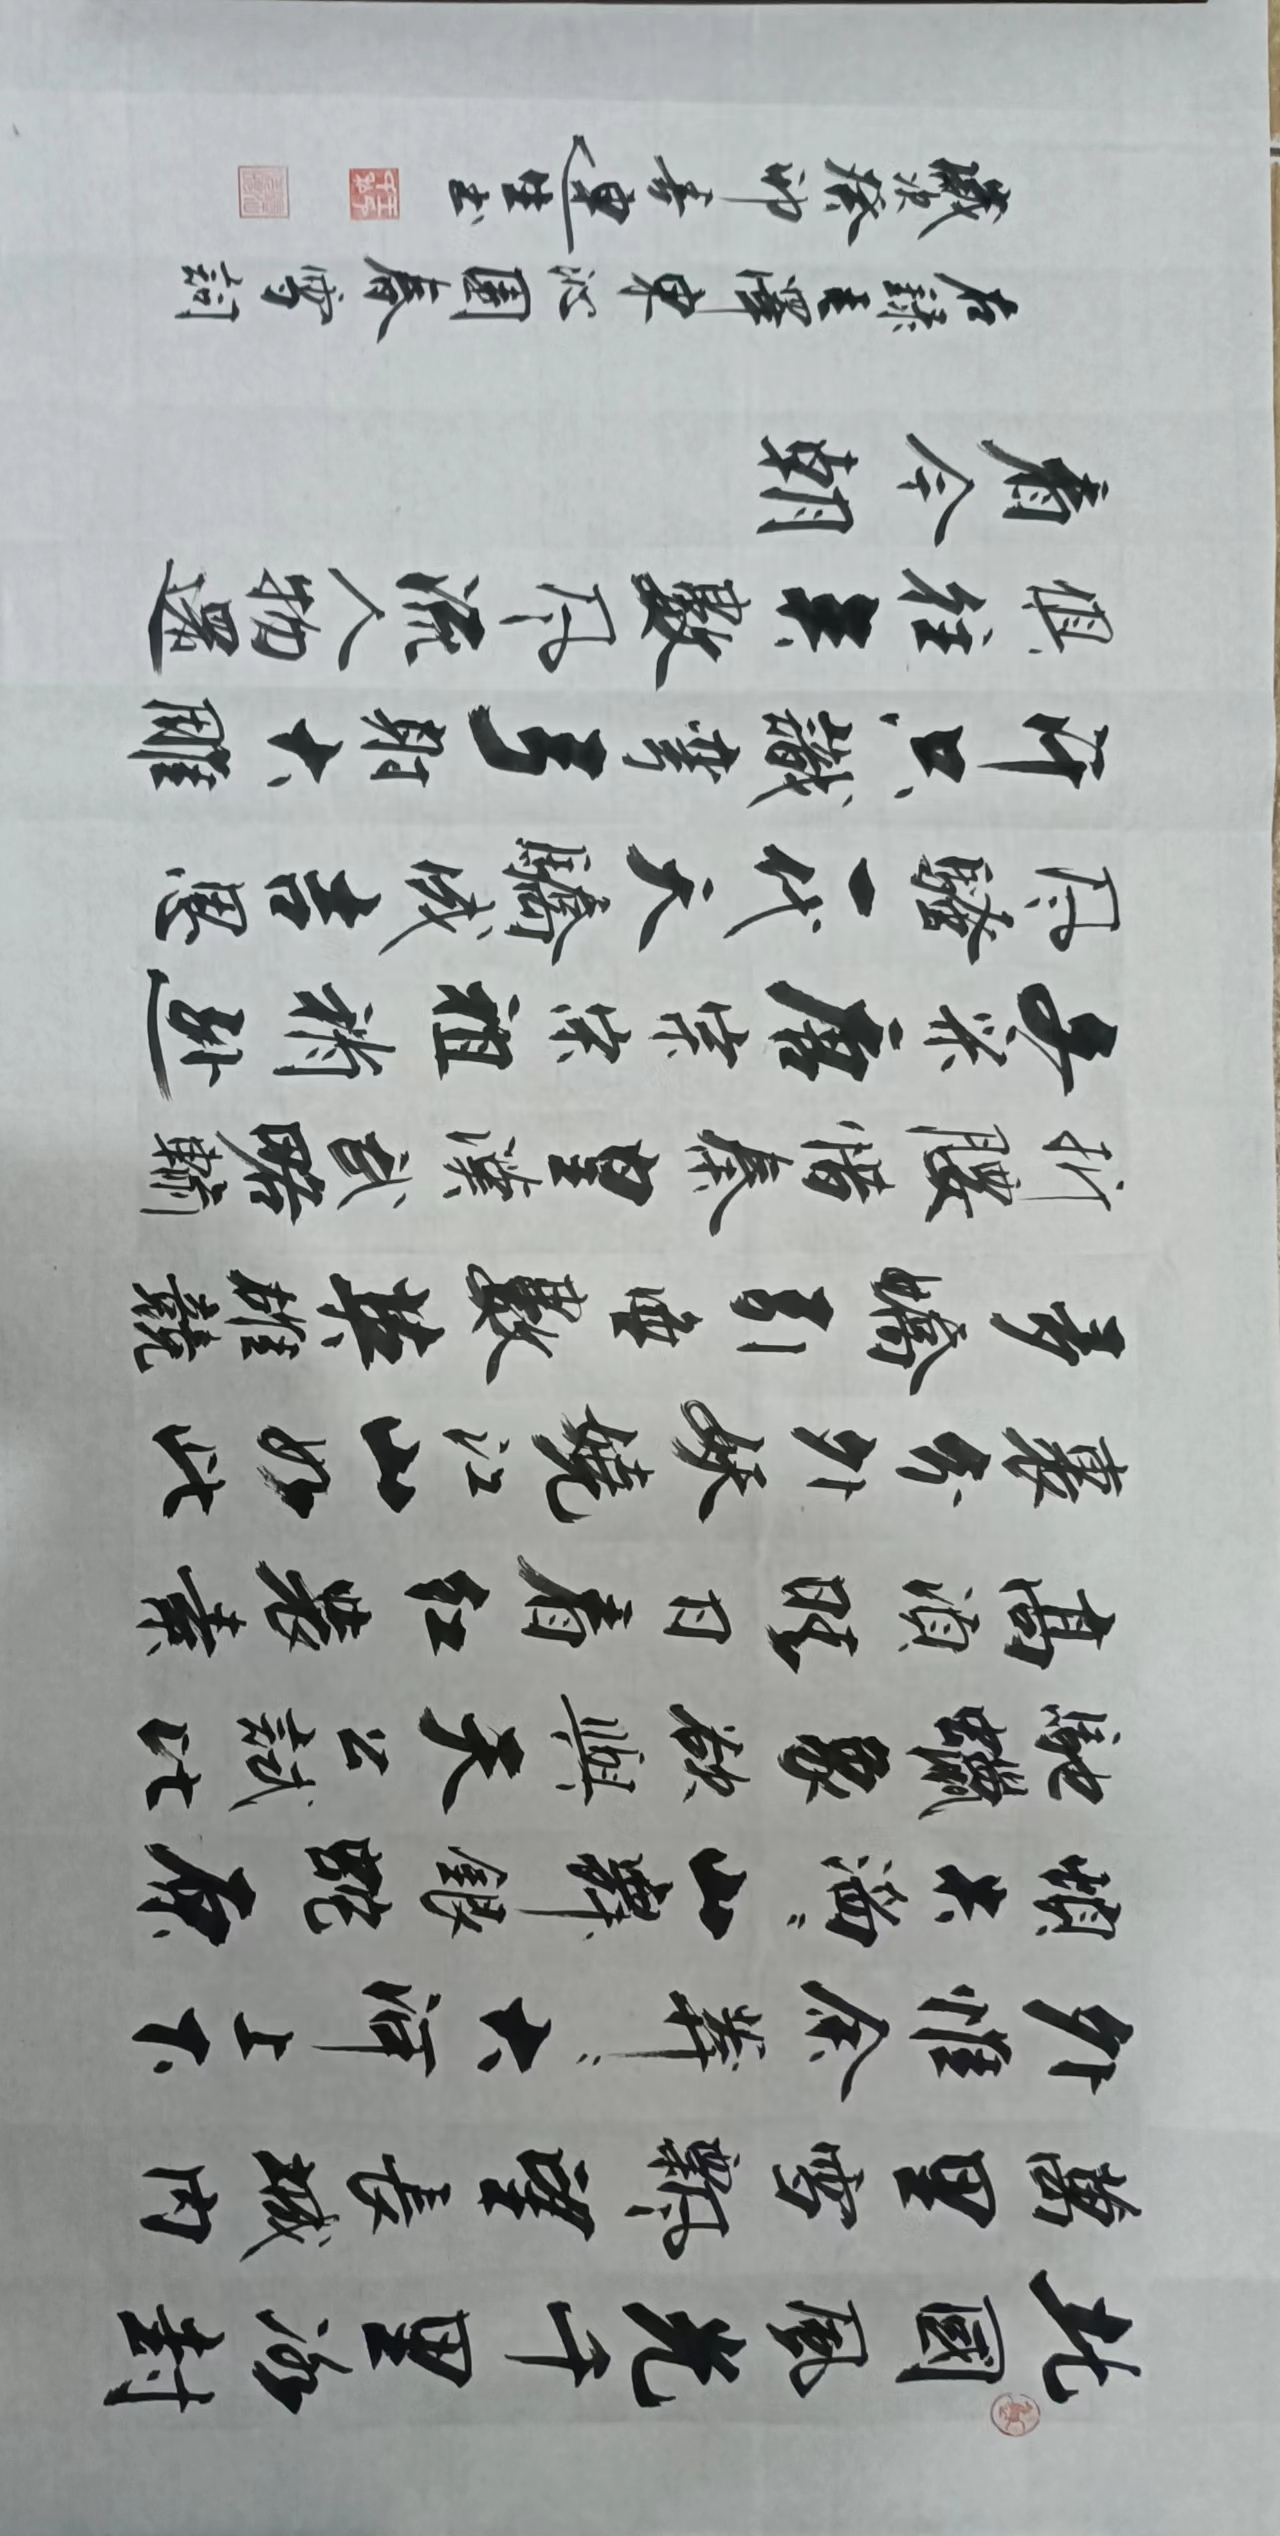 北國風光千里冰封
萬里雪飄望長城內
外惟余莽〻大河上下
頓失滔〻山舞銀蛇原
馳蠟象欲與天公試比
高須晴日看紅裝素
裹分外妖嬈江山如此
多嬌引無數英雄競
折腰惜秦皇漢武略輸
文采唐宗宋祖稍遜
風騷一代天驕成吉思
汗只識彎弓射大雕
俱往矣數風流人物還
看今朝
右錄毛澤東沁園春雪詞
歲次癸卯春連生书